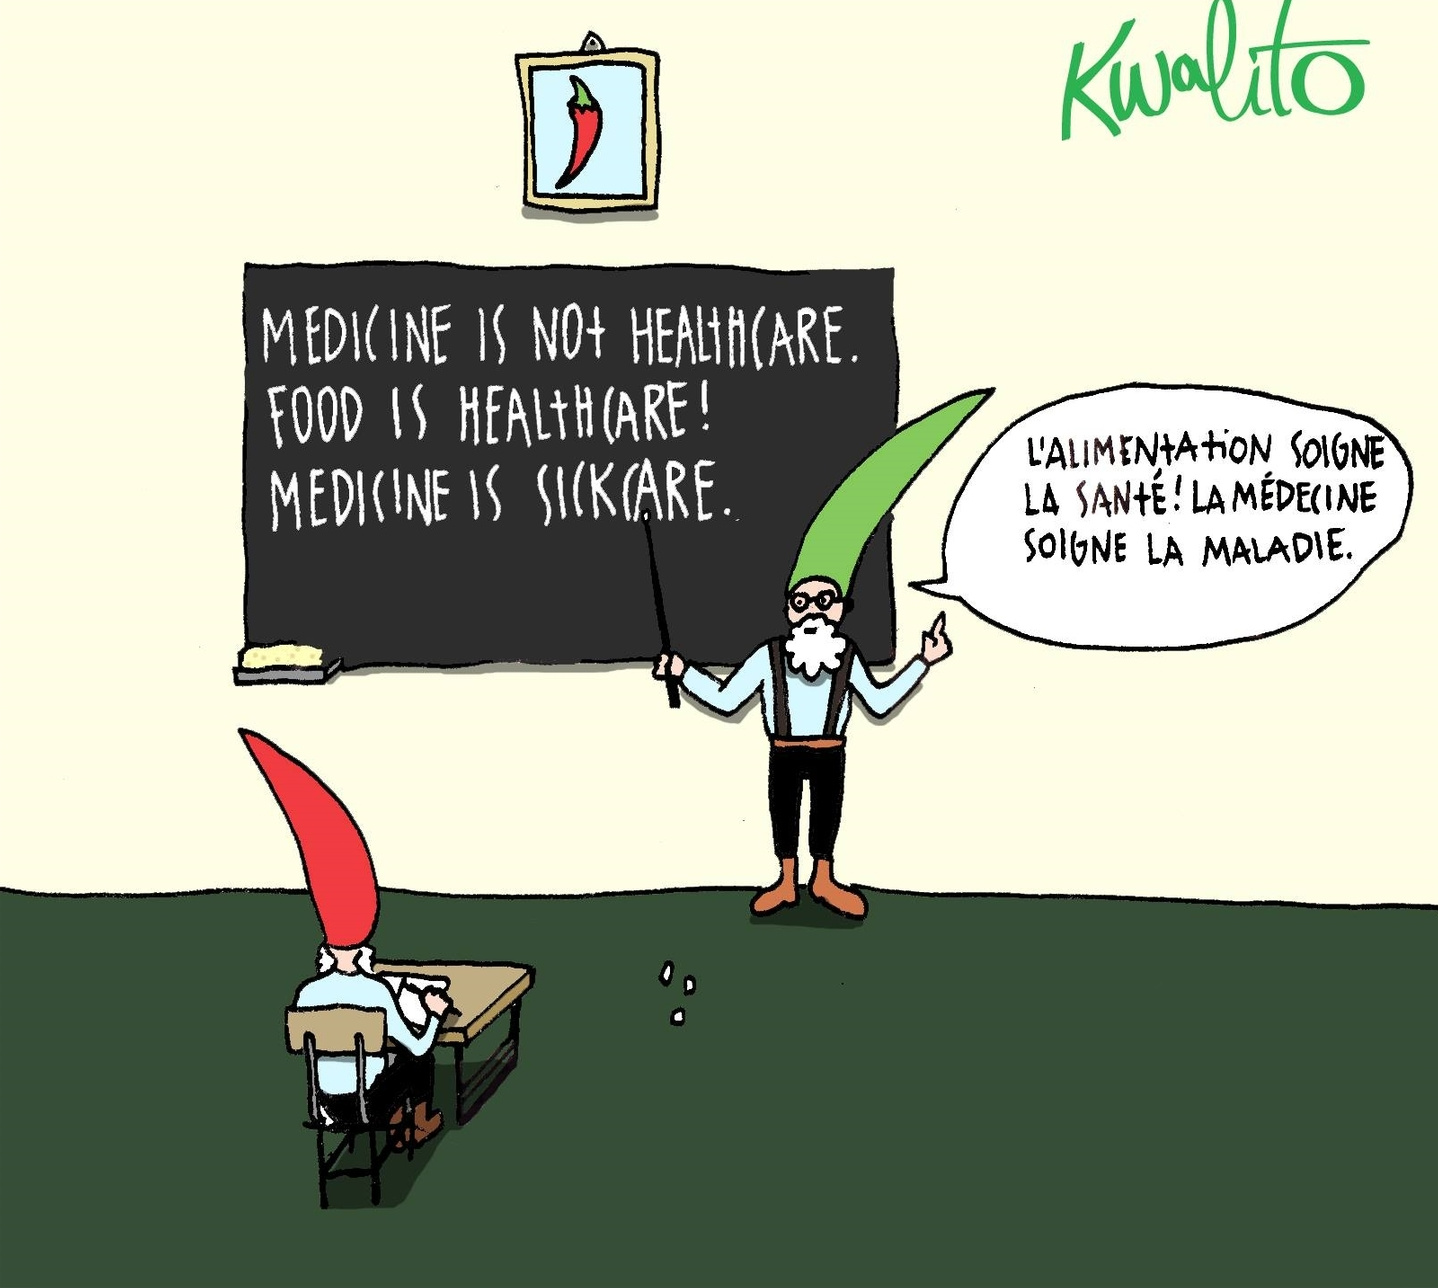 Kwalito
MEDICINE IS NOT HEALTHCARE.
FOOD IS HEALTHCARE!
MEDICINE IS SICKCARE.
L'ALIMENTATION SOIGNE
LA SANTÉ! LA MÉDECINE
SOIGNE LA MALADIE.